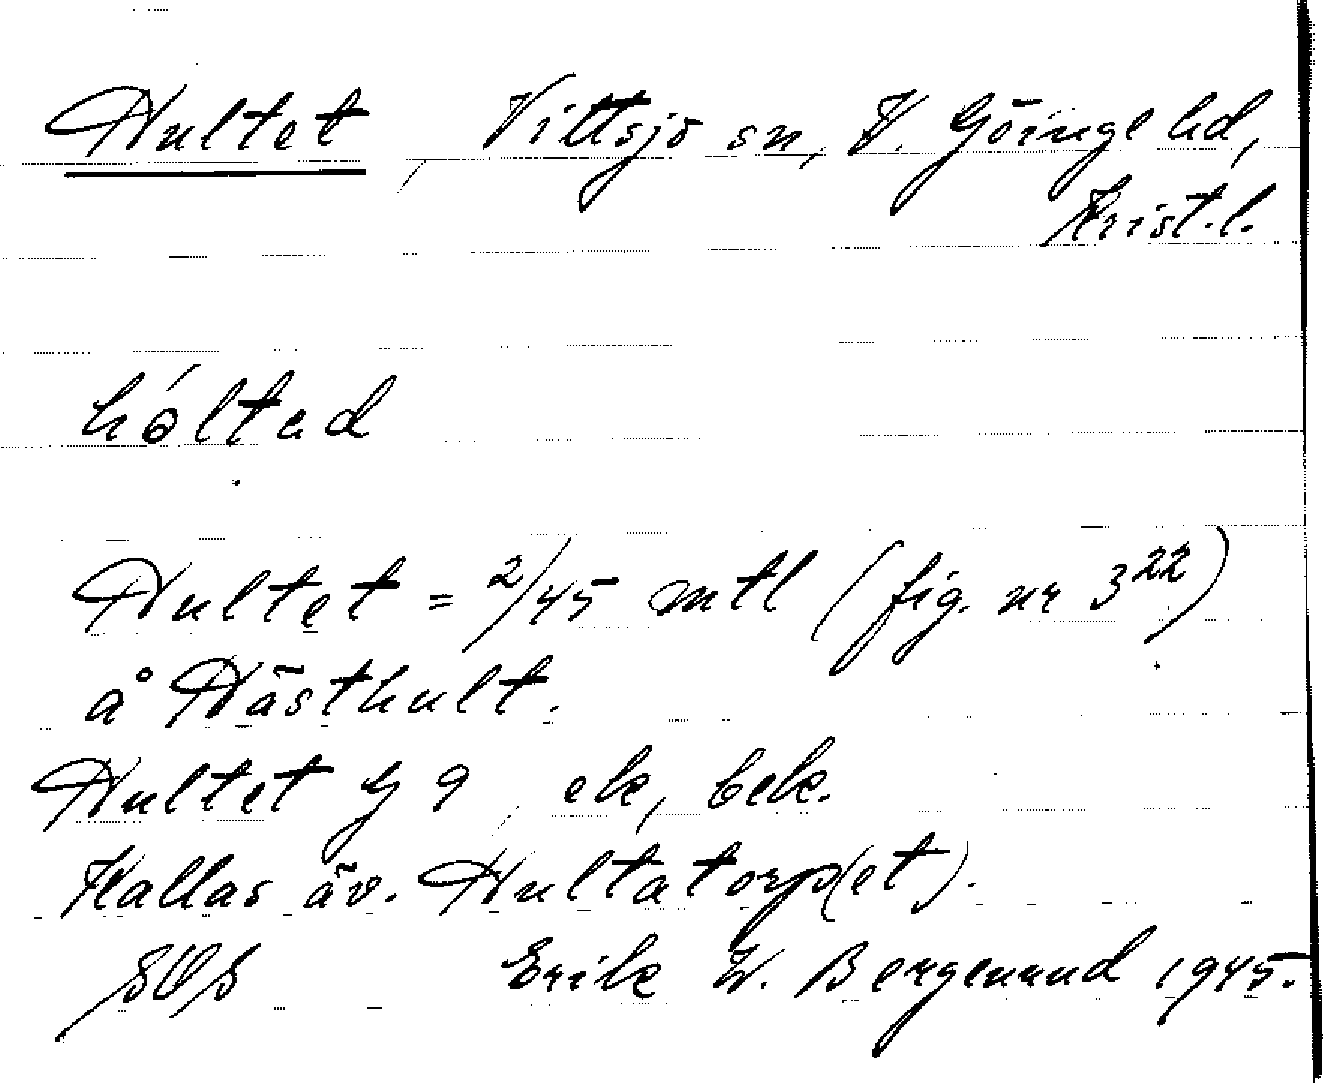 Hultet, Vittsjö sn, V. Göinge hd,
Krist.l.
hóltad
Hultet = 2/45 mtl (fig. nr 3²²)
å Hästhult.
Hultet G 9, ek, bek.
Kallas äv. Hultatorp(et).
SOS Erik W. Bergenrud 1945.